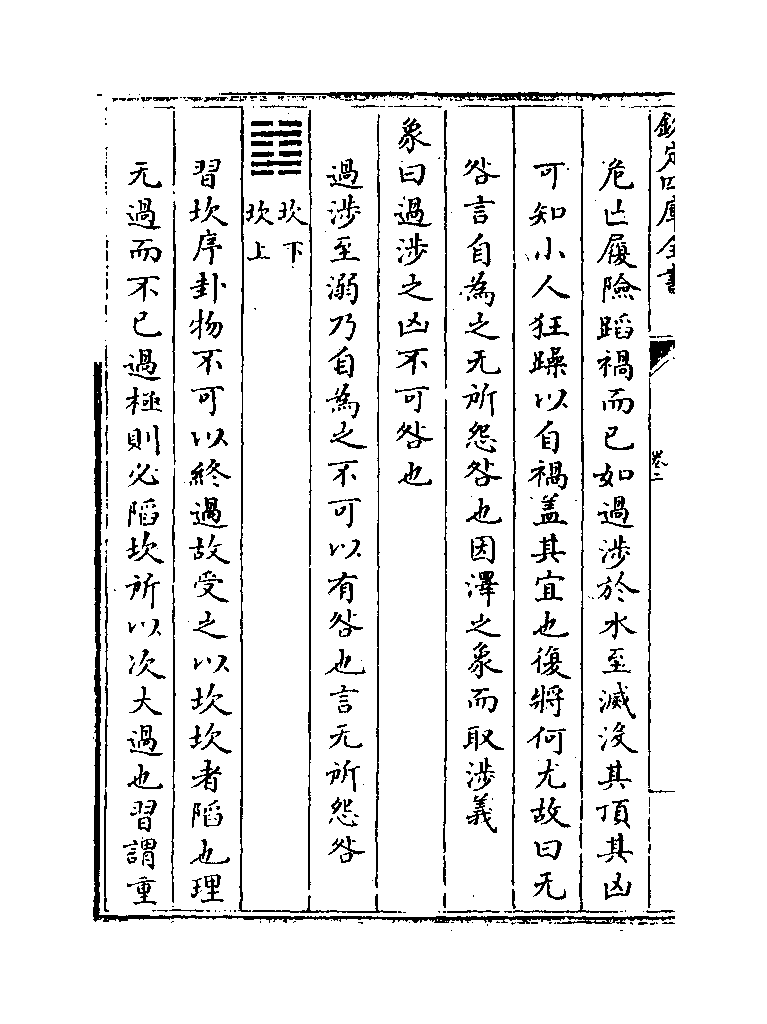 欽定四庫全書
卷二
危亡履險蹈禍而已如過涉於水至滅没其頂其凶
可知小人狂躁以自禍盖其宜也復將何尤故曰无
咎言自為之无所怨咎也因澤之象而取涉義
象曰過涉之凶不可咎也
過涉至溺乃自為之不可以有咎也言无所怨咎
坎下
坎上
習坎序卦物不可以終過故受之以坎坎者陷也理
无過而不已過極則必陷坎所以次大過也習謂重